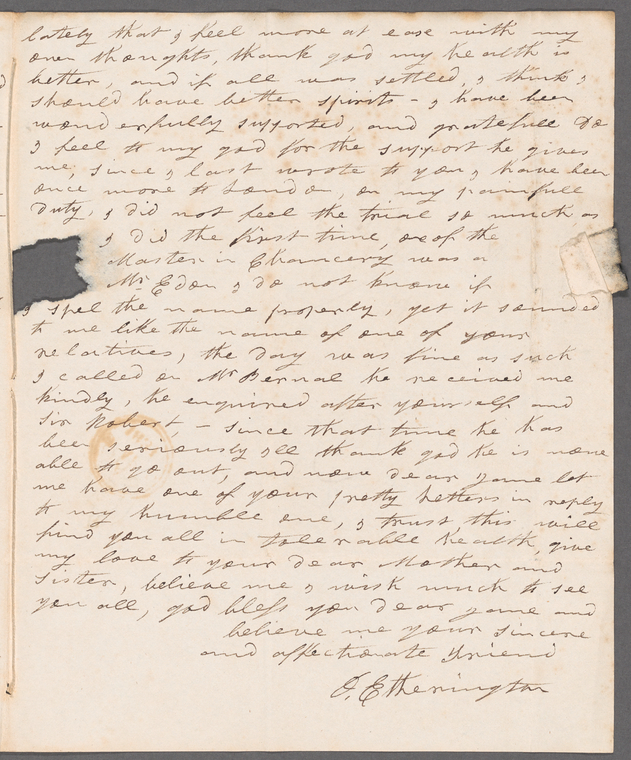 lately that I feel more at ease with my
own thoughts, thank god my health is
better, and if all was settled, I think I
should have better spirits - I have been
wonderfully supported, and gratefull Do
I feel to my god for the support he gives
me, since I last wrote to you I have been
once more to London, on my painfull
duty, I did not feel the trial so much as
I did the first time, one of the
Master in Chancery was a
Mr Eden I do not know if
I spel the name properly, yet it sounded
to me like the name of one of your
relatives, the day was fine as such
I called on Mr Bernal he received me
kindly, he enquired after yourself and
Sir Robert, - since that time he has
been seriously ill thank god he is now
able to go out, and now dear Jane let
me have one of your pretty letters in reply
to my humble one, I trust this will
find you all in tolerable health, give
my love to your dear Mother and
Sister, believe me I wish much to see
you all, god bless you dear Jane and
believe me your sincere
and affectionate friend
J. Etherington